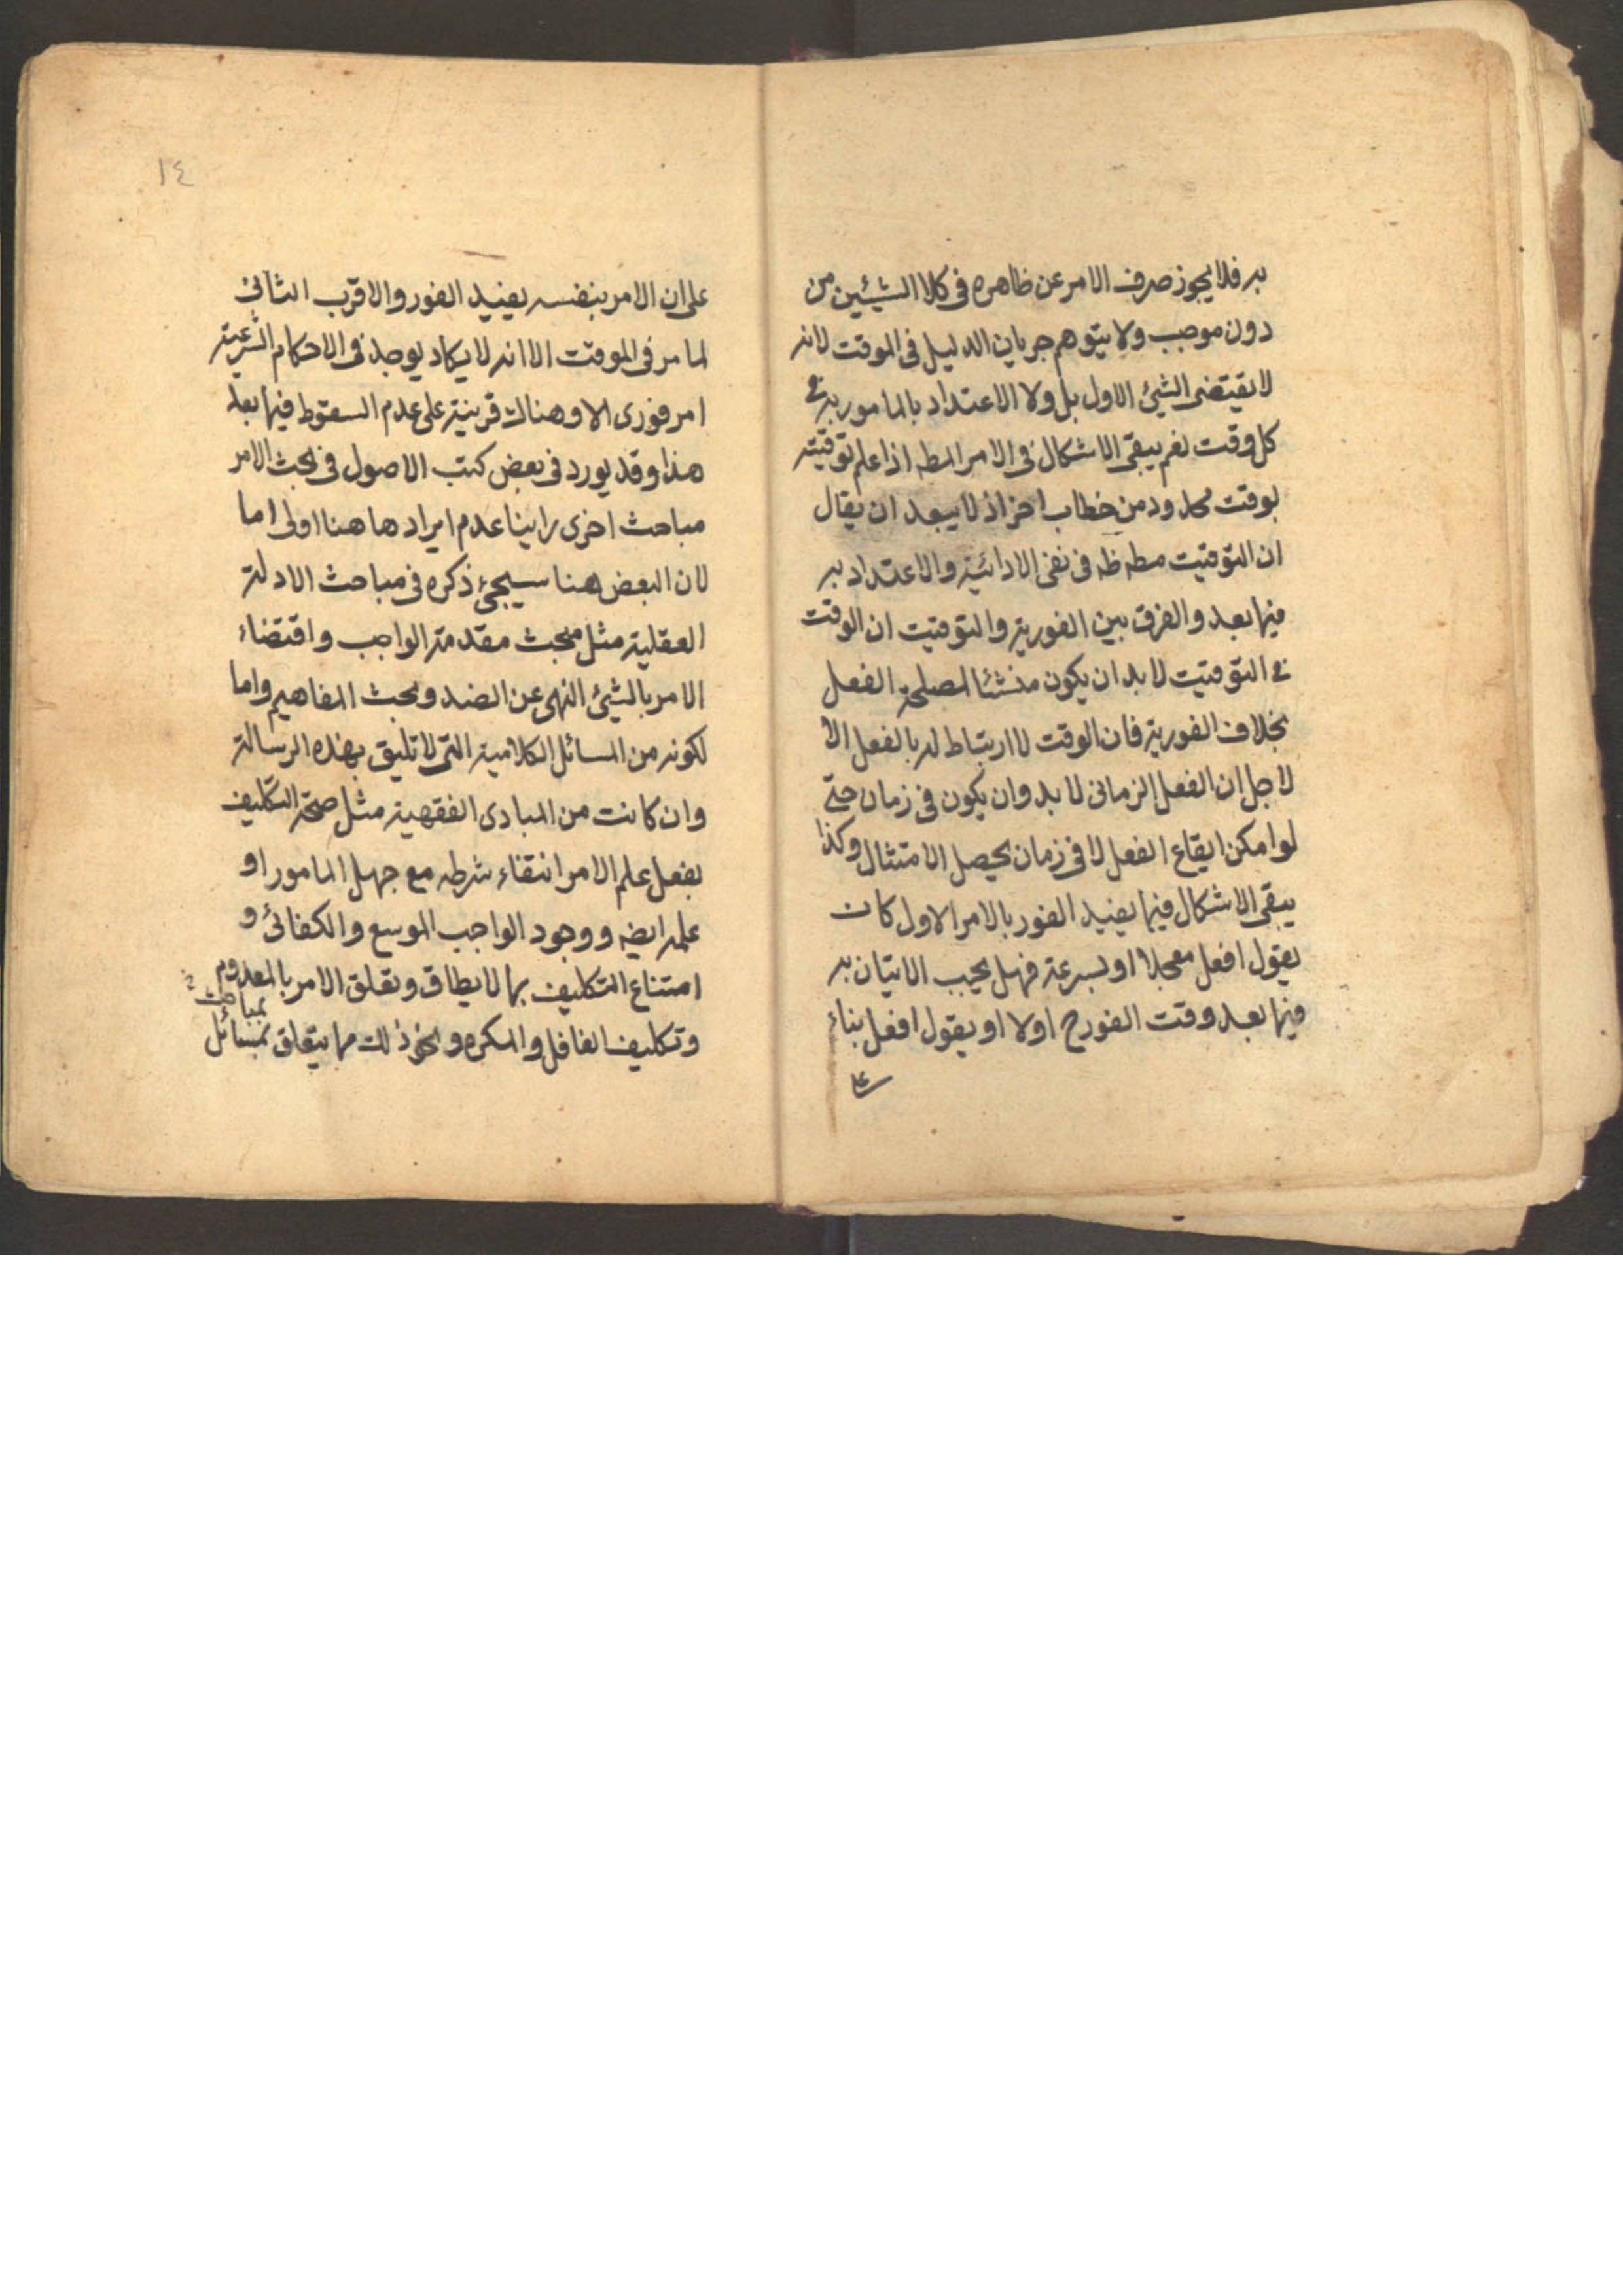 به فلا يجوز صرف الامر عن ظاهره فى كلا الشيئين من
دون موجب ولا يتوهم جريان الدليل فى الموقت لانه
لا يقتضى الشئ الاول بل ولا الاعتداد بالمامور به فى
كل وقت نعم يبقى الاشكال فى الامر المطه اذا علم توقيته
بوقت محدود من خطاب اخر اذ لا يبعد ان يقال
ان التوقيت مطه ظه فى نفى الادائية والاعتداد به
فيما بعد والفرق بين الفورية والتوقيت ان الوقت
فى التوقيت لا بد ان يكون منشئا لمصلحة الفعل
بخلاف الفورية فان الوقت لا ارتباط له بالفعل الا
لاجل ان الفعل الزمانى لا بد وان يكون فى زمان حتى
لو امكن ايقاع الفعل لا فى زمان يحصل الامتثال وكذا
يبقى الاشكال فيما يفيد الفور بالامر الاول كان
يقول افعل معجلا او بسرعة فهل يجب الاتيان به
فيما بعد وقت الفور ح اولا او يقول افعل بناء
على
١٤
على ان الامر بنفسه يفيد الفور والاقرب الثانى
لما مر فى الموقت الا انه لا يكاد يوجد فى الاحكام الشرعية
امر فورى الا وهناك قرينة على عدم السقوط فيما بعد
هذا وقد يورد فى بعض كتب الاصول فى بحث الامر
مباحث اخرى راينا عدم ايرادها هنا اولى اما
لان البعض هنا سيجئ ذكره فى مباحث الادلة
العقلية مثل مبحث مقدمة الواجب واقتضاء
الامر بالشئ النهى عن الضد وبحث المفاهيم واما
لكونه من المسائل الكلامية التى لا تليق بهذه الرسالة
وان كانت من المبادى الفقهية مثل صحة التكليف
بفعل علم الامر انتفاء شرطه مع جهل المامور او
علمه ايضه ووجود الواجب الموسع والكفائى و
امتناع التكليف بما لا يطاق وتعلق الامر بالمعدوم
بمباحث
وتكليف الغافل والمكره ونحو ذلك مما يتعلق بمسائل